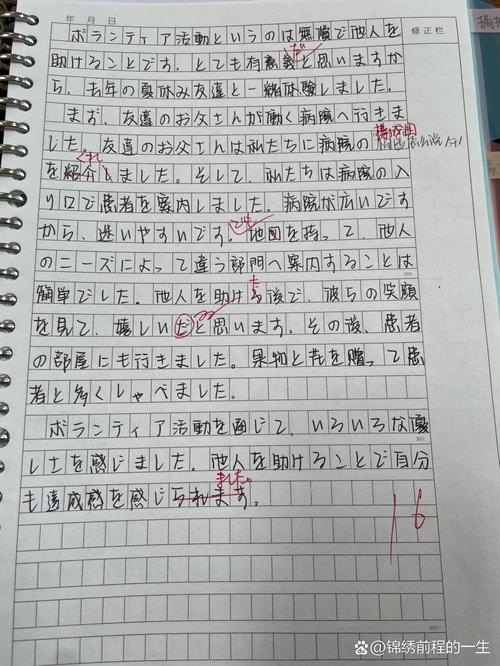 年 月 日
修正栏
ボランティア活動というのは無償で他人を
だ
助けることです。とても有意義と思いますか
ら、去年の夏休み友達と一緒体験しました。
まず、友達のお父さんが働く病院へ行きま
した。友達のお父さんは私たちに病院の
くれ
を紹介しました。そして、私たちは病院の入
り口で患者を案内しました。病院が広いです
から、迷いやすいです。地図を持って、他人
のニーズによって違う部門へ案内することは
た
簡単でした。他人を助ける後で、彼らの笑顔
を見て、嬉しいだと思います。その後、患者
の部屋にも行きました。果物と花を贈って患
者と多くしゃべました。
ボランティア活動を通じて、いろいろな優
しさを感じました。他人を助けることで自分
ました。
も達成感を感じられます。
16
百家号/锦绣前程的一生